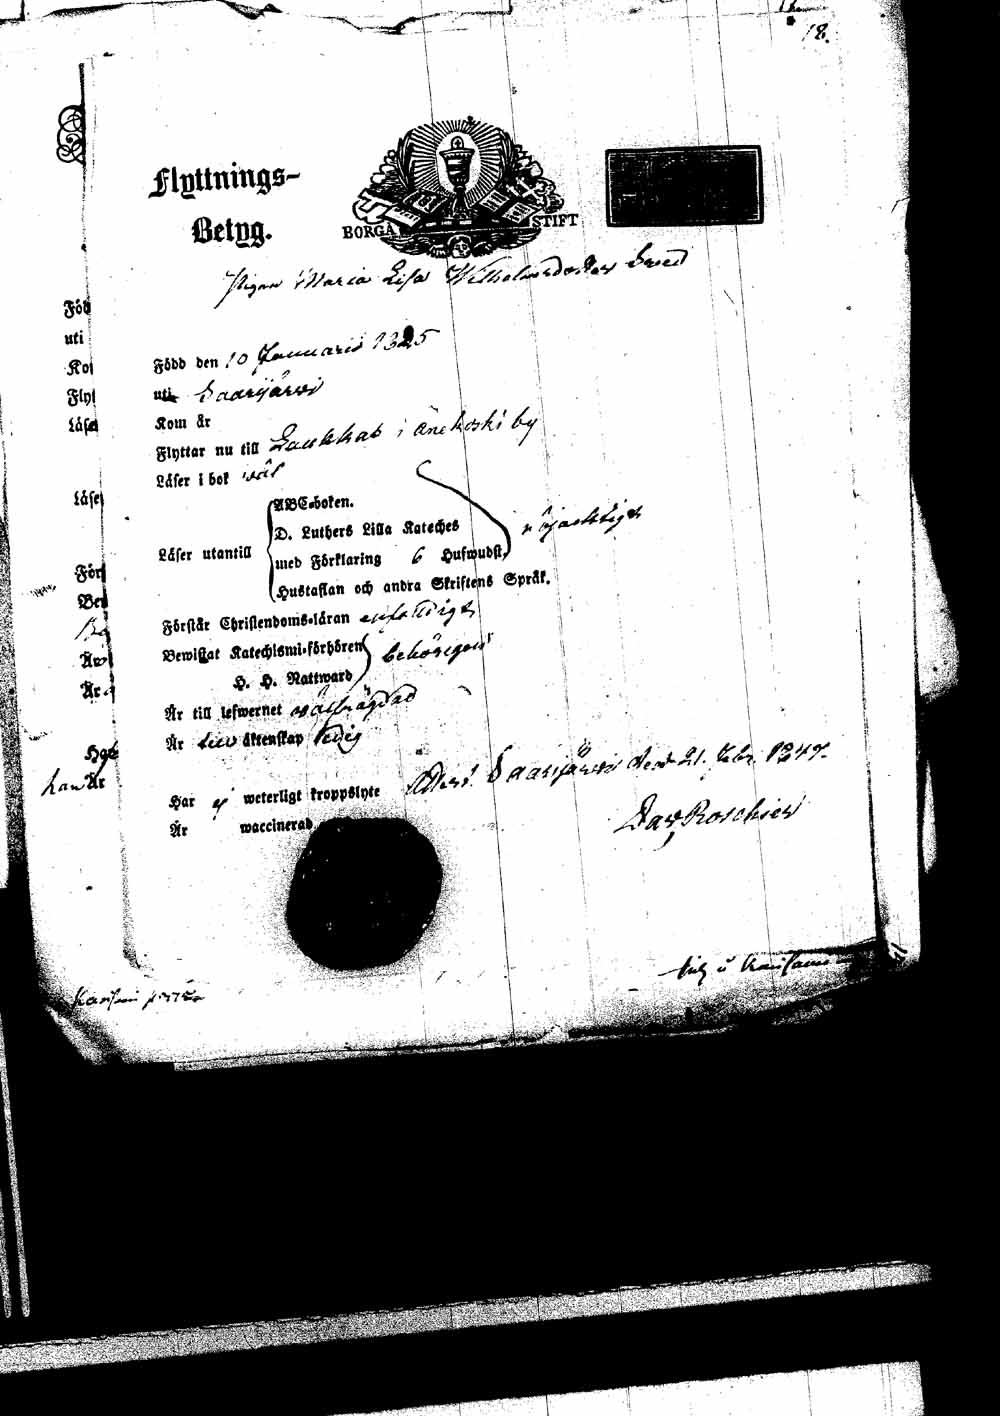 18.
Flyttnings-
Betyg.
BORGÅ STIFT
Pigan Maria Lisa Wilhelmsdotter
Född den 10 Januarii 1825
uti Saarijärwi
Kom år
Flyttar nu till Laukkas i Änekoski by
Läser i bok wäl
Läser utantill
ABC-boken.
D. Luthers Lilla Kateches
med Förklaring 6 Hufwudst.
Hustaflan och andra Skriftens Språk.
nöjachtigt
Förstår Christendoms-läran enfaldigt
Bewistat Katechismi-förhören
H. H. Nattward
behörigen
Är till lefwernet wälfrägdad
Är till äktenskap ledig
Har ej weterligt kroppslyte
Är waccinerad
Attest. Saarijärwi den 21. Febr. 1847.
Dav Roschier
Föd
uti
Flyt
Läse
Läse
För
Bew
Är
Är
han Är